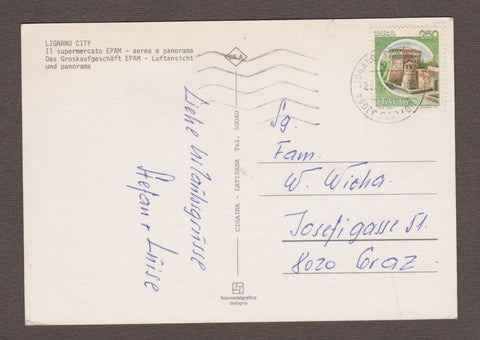 LIGNANO CITY
Il supermercato EPAM - aerea e panorama
Das Groskaufgeschäft EPAM - Luftansicht
und panorama
250
ITALIA
CICAINA - LATISANA Tel. 50040
fotometalgrafica
bologna
Liebe Urlaubsgrüsse
Stefan + Luise
Sg.
Fam.
W. Wicha
Josefigasse 51
8020 Graz